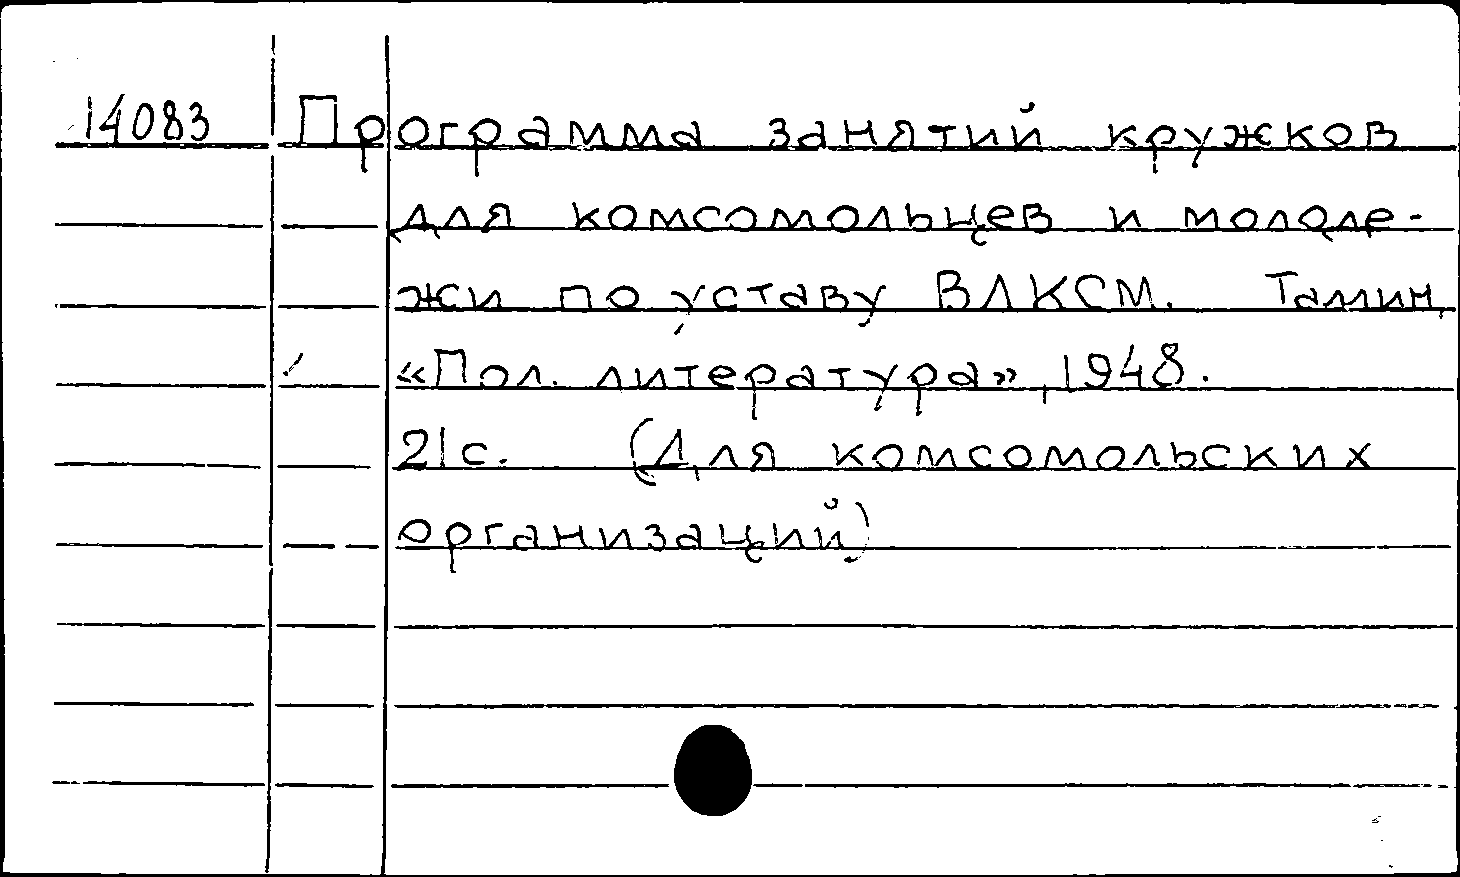 14083 Программа занятий кружков
для комсомольцев и молоде-
жи по уставу ВЛКСМ. Таллин,
«Пол. литература», 1948.
21 с. (Для комсомольских
организаций)